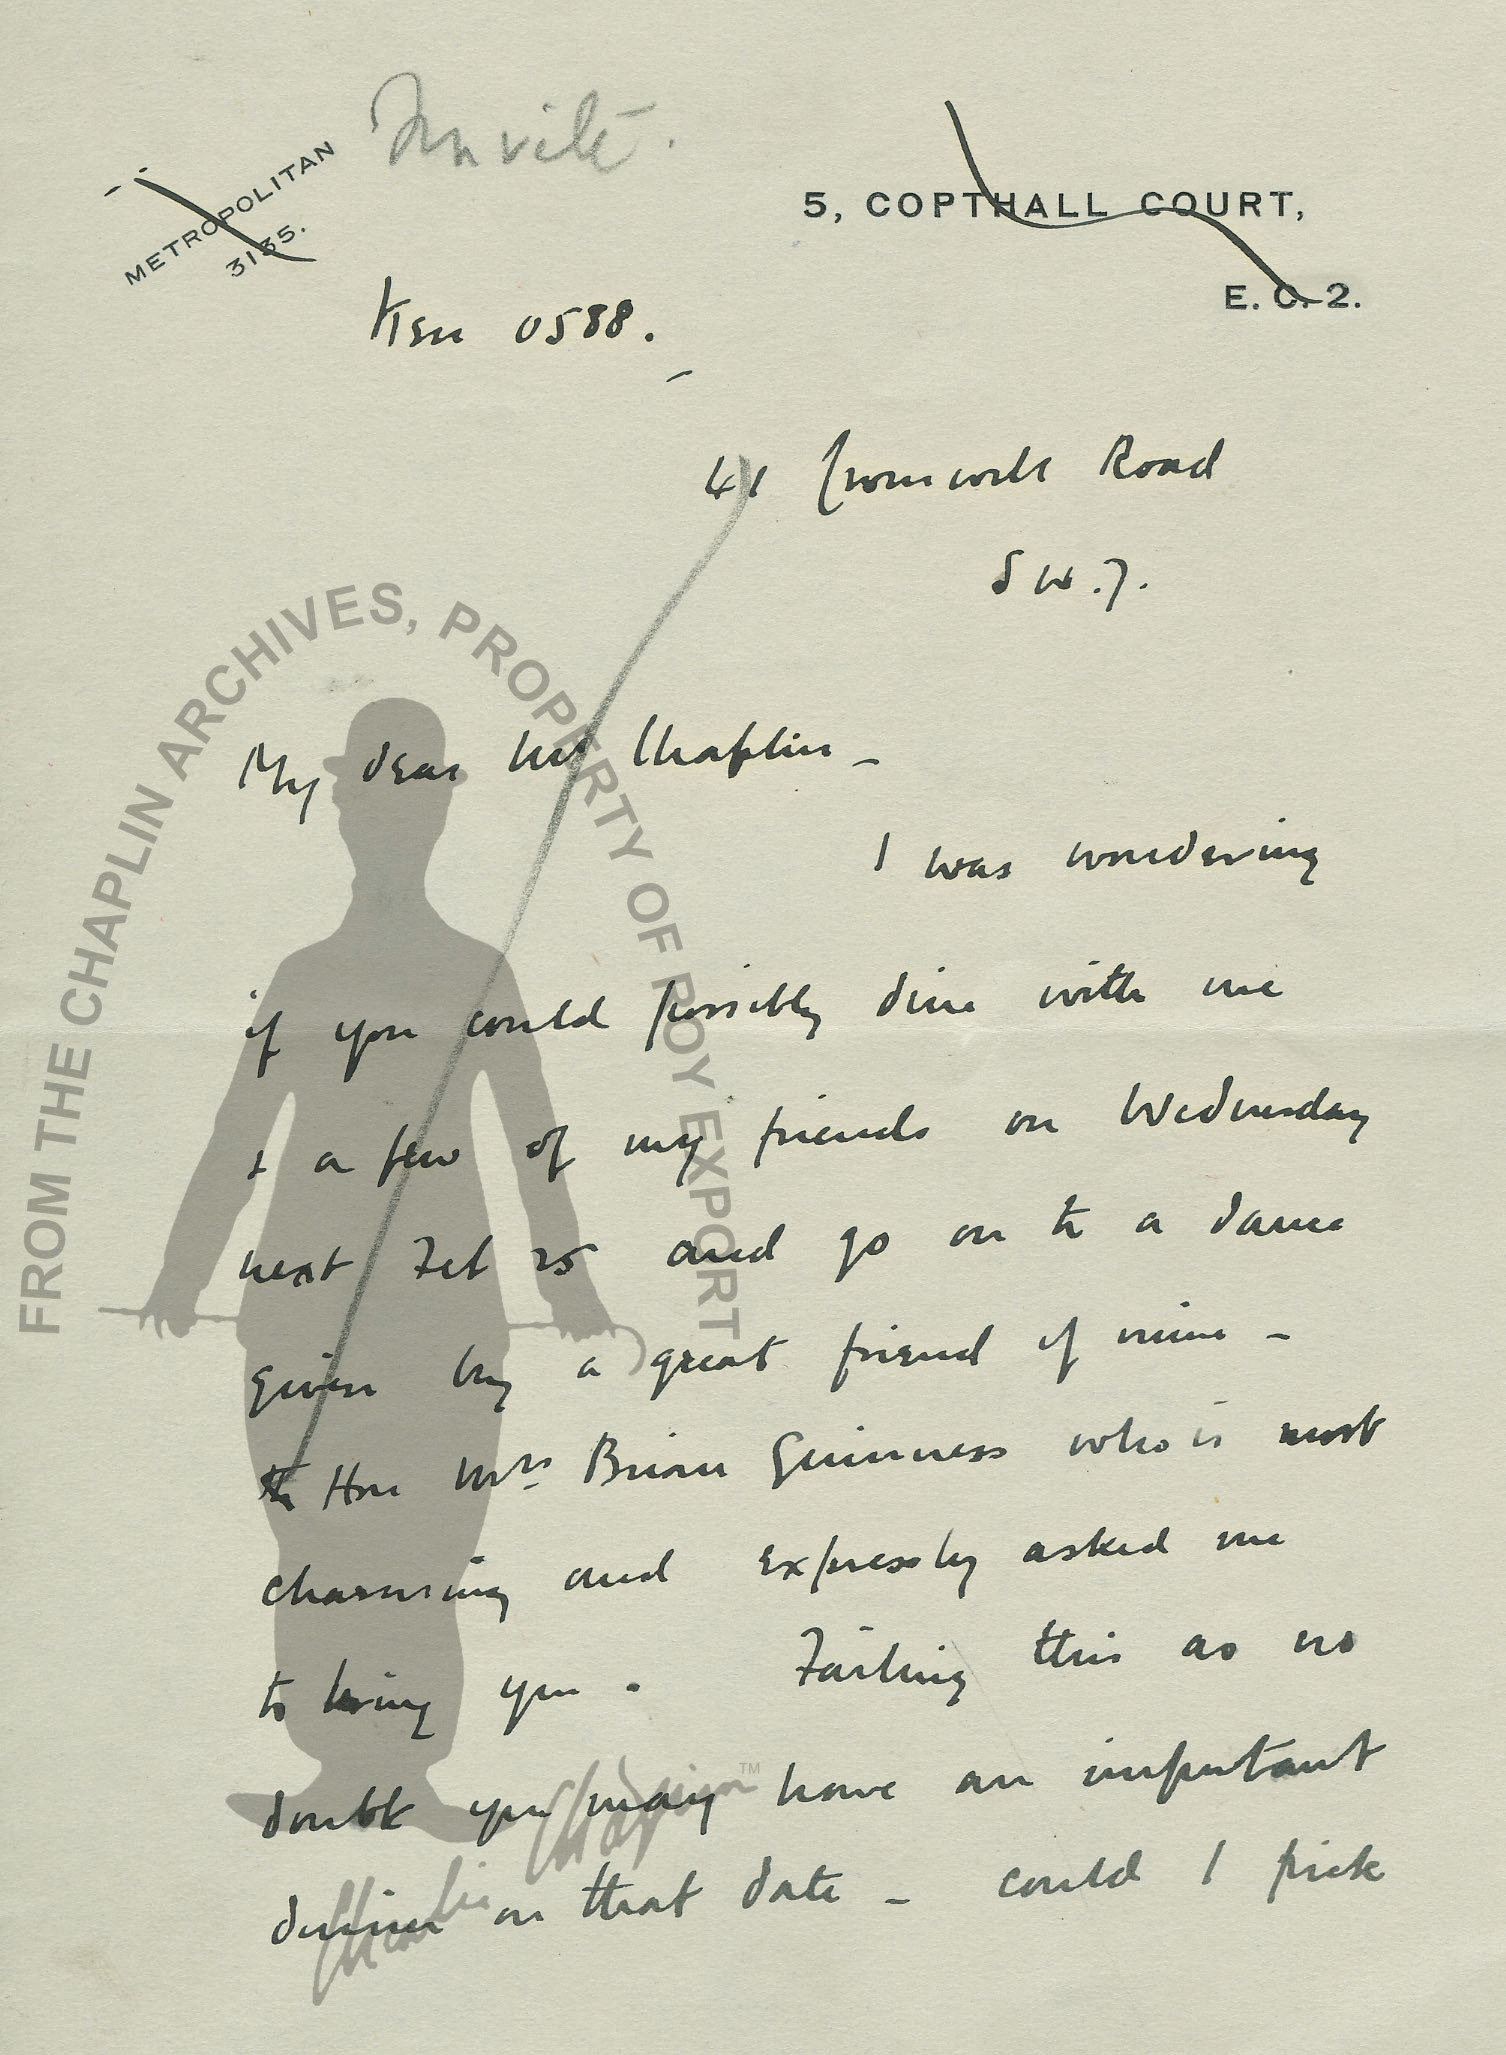 Invite.
METROPOLITAN
3135.
5, COPTHALL COURT,
E. C. 2.
Ken 0588.
41 Cromwell Road
S W. 7.
My dear Mr Chaplin –
I was wondering
if you could possibly dine with me
& a few of my friends on Wednesday
next Feb 25 and go on to a dance
given by a great friend of mine –
the Hon Mrs Brian Guinness who is most
charming and expressly asked me
to bring you. Failing this as no
doubt you may have an important
dinner on that date – could I pick
FROM THE CHAPLIN ARCHIVES, PROPERTY OF ROY EXPORT
Charlie Chaplin TM